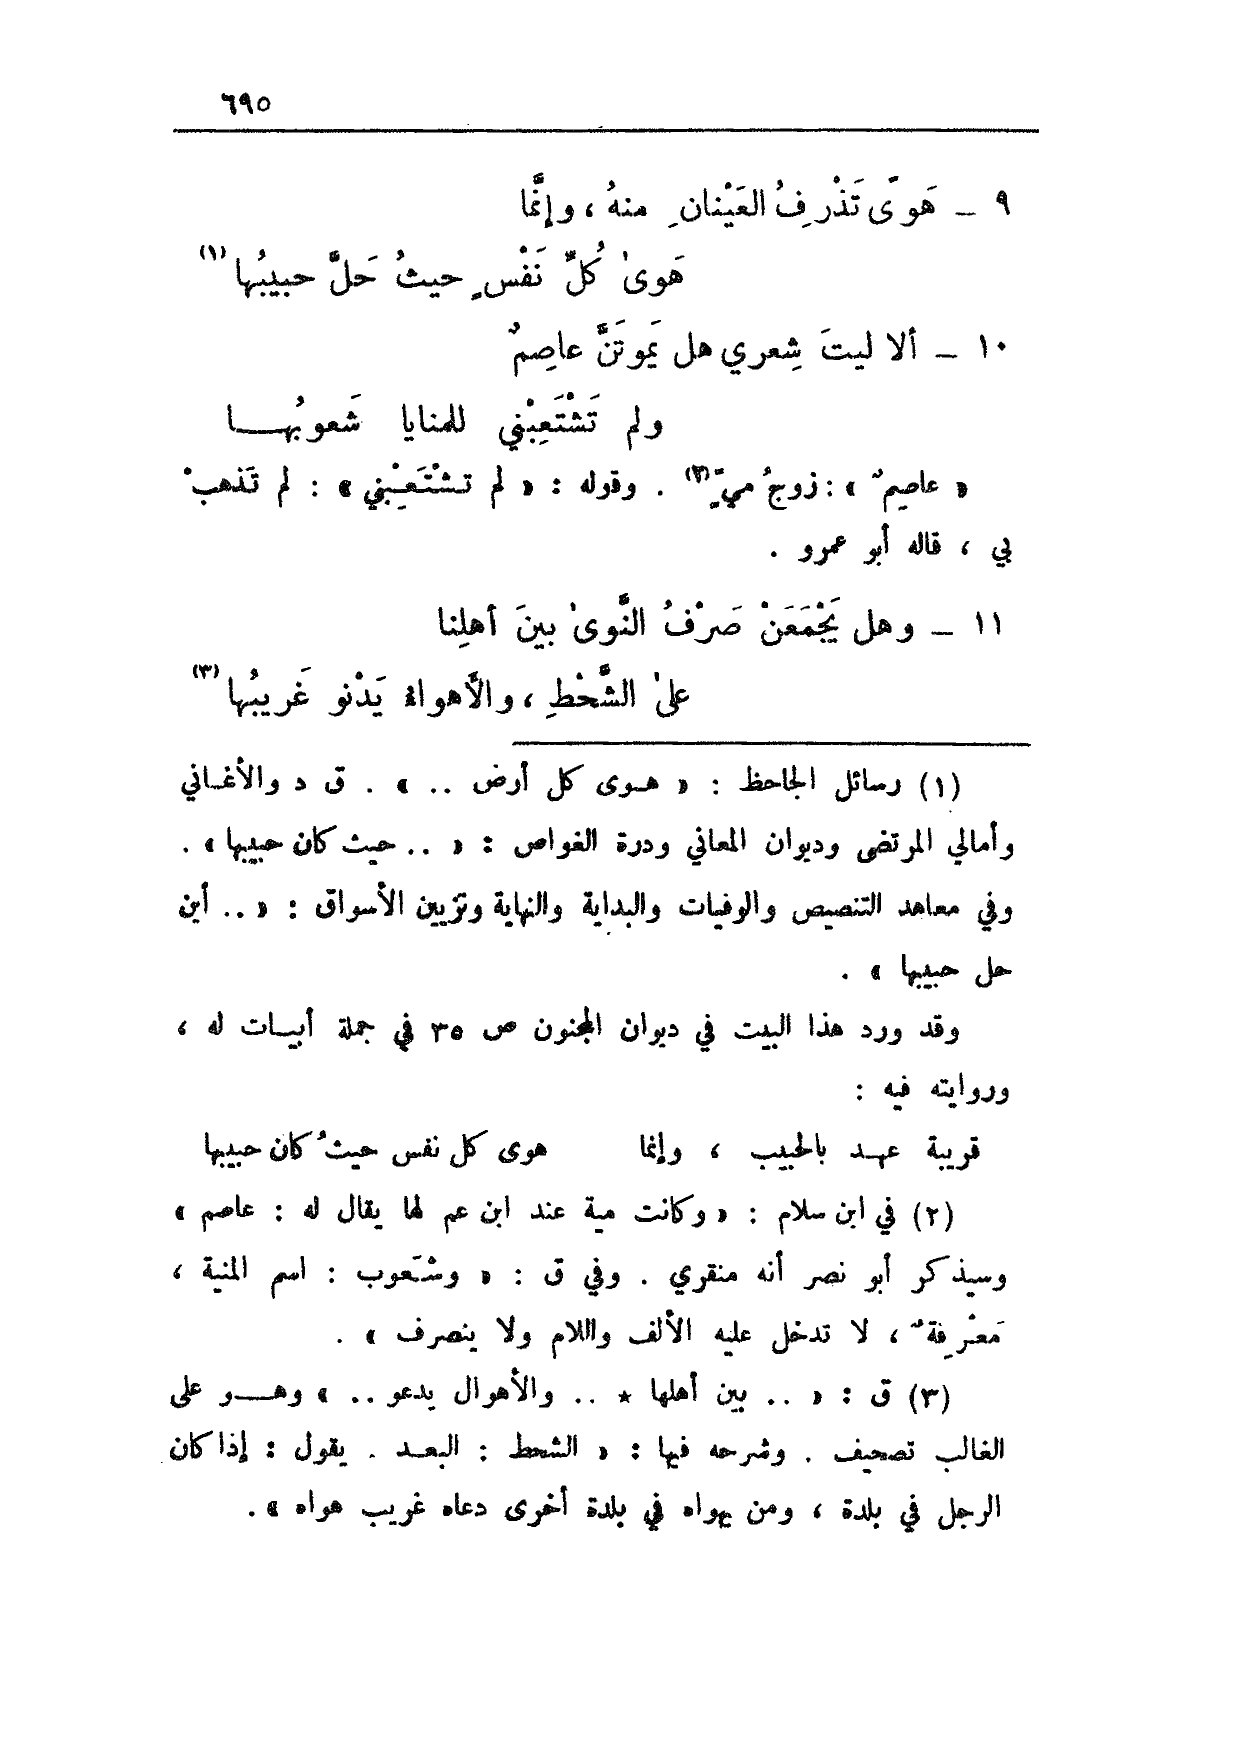 ٦٩٥
٩ ـ هَوىً تَذْرِفُ العَيْنانِ منهُ ، وإنَّما
هَوىٰ كُلِّ نَفْسٍ حيثُ حَلَّ حبيبُها (١)
١٠ ـ ألا ليتَ شِعري هل يَموتَنَّ عاصِمٌ
ولم تَشْتَعِبْني للمنايا شَعوبُهـــا
« عاصِمٌ » : زوجُ ميّ(٢) . وقوله : « لم تـشْتَعِـبْني » : لم تَذهبْ
بي ، قاله أبو عمرو .
١١ ـ وهل يَجْمَعَنْ صَرْفُ النَّوىٰ بينَ أهلِنا
علىٰ الشَّحْطِ ، والأَهواءُ يَدْنو غَريبُها (٣)
(١) رسائل الجاحظ : « هـوى كل أرض .. » . ق د والأغـاني
وأمالي المرتضى وديوان المعاني ودرة الغواص : « .. حيث كان حبيبها » .
وفي معاهد التنصيص والوفيات والبداية والنهاية وتزيين الأسواق : « .. أين
حل حبيبها » .
وقد ورد هذا البيت في ديوان المجنون ص ٣٥ في جملة أبيـات له ،
وروايته فيه :
قريبة عهـد بالحبيب ، وإنما هوى كل نفس حيثُ كان حبيبها
(٢) في ابن سلام : « وكانت مية عند ابن عم لها يقال له : عاصم »
وسيذكر أبو نصر أنه منقري . وفي ق : « وشَعوب : اسم المنية ،
مَعْرِفةٌ ، لا تدخل عليه الألف واللام ولا ينصرف » .
(٣) ق : « .. بين أهلها * .. والأهوال يدعو .. » وهـــو على
الغالب تصحيف . وشرحه فيها : « الشحط : البعـد . يقول : إذا كان
الرجل في بلدة ، ومن يهواه في بلدة أخرى دعاه غريب هواه » .